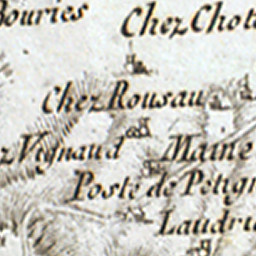 Bouries
Chez Chot
Chez Rousau
z Vignaud
Maine
Poste de Petign
Laudri